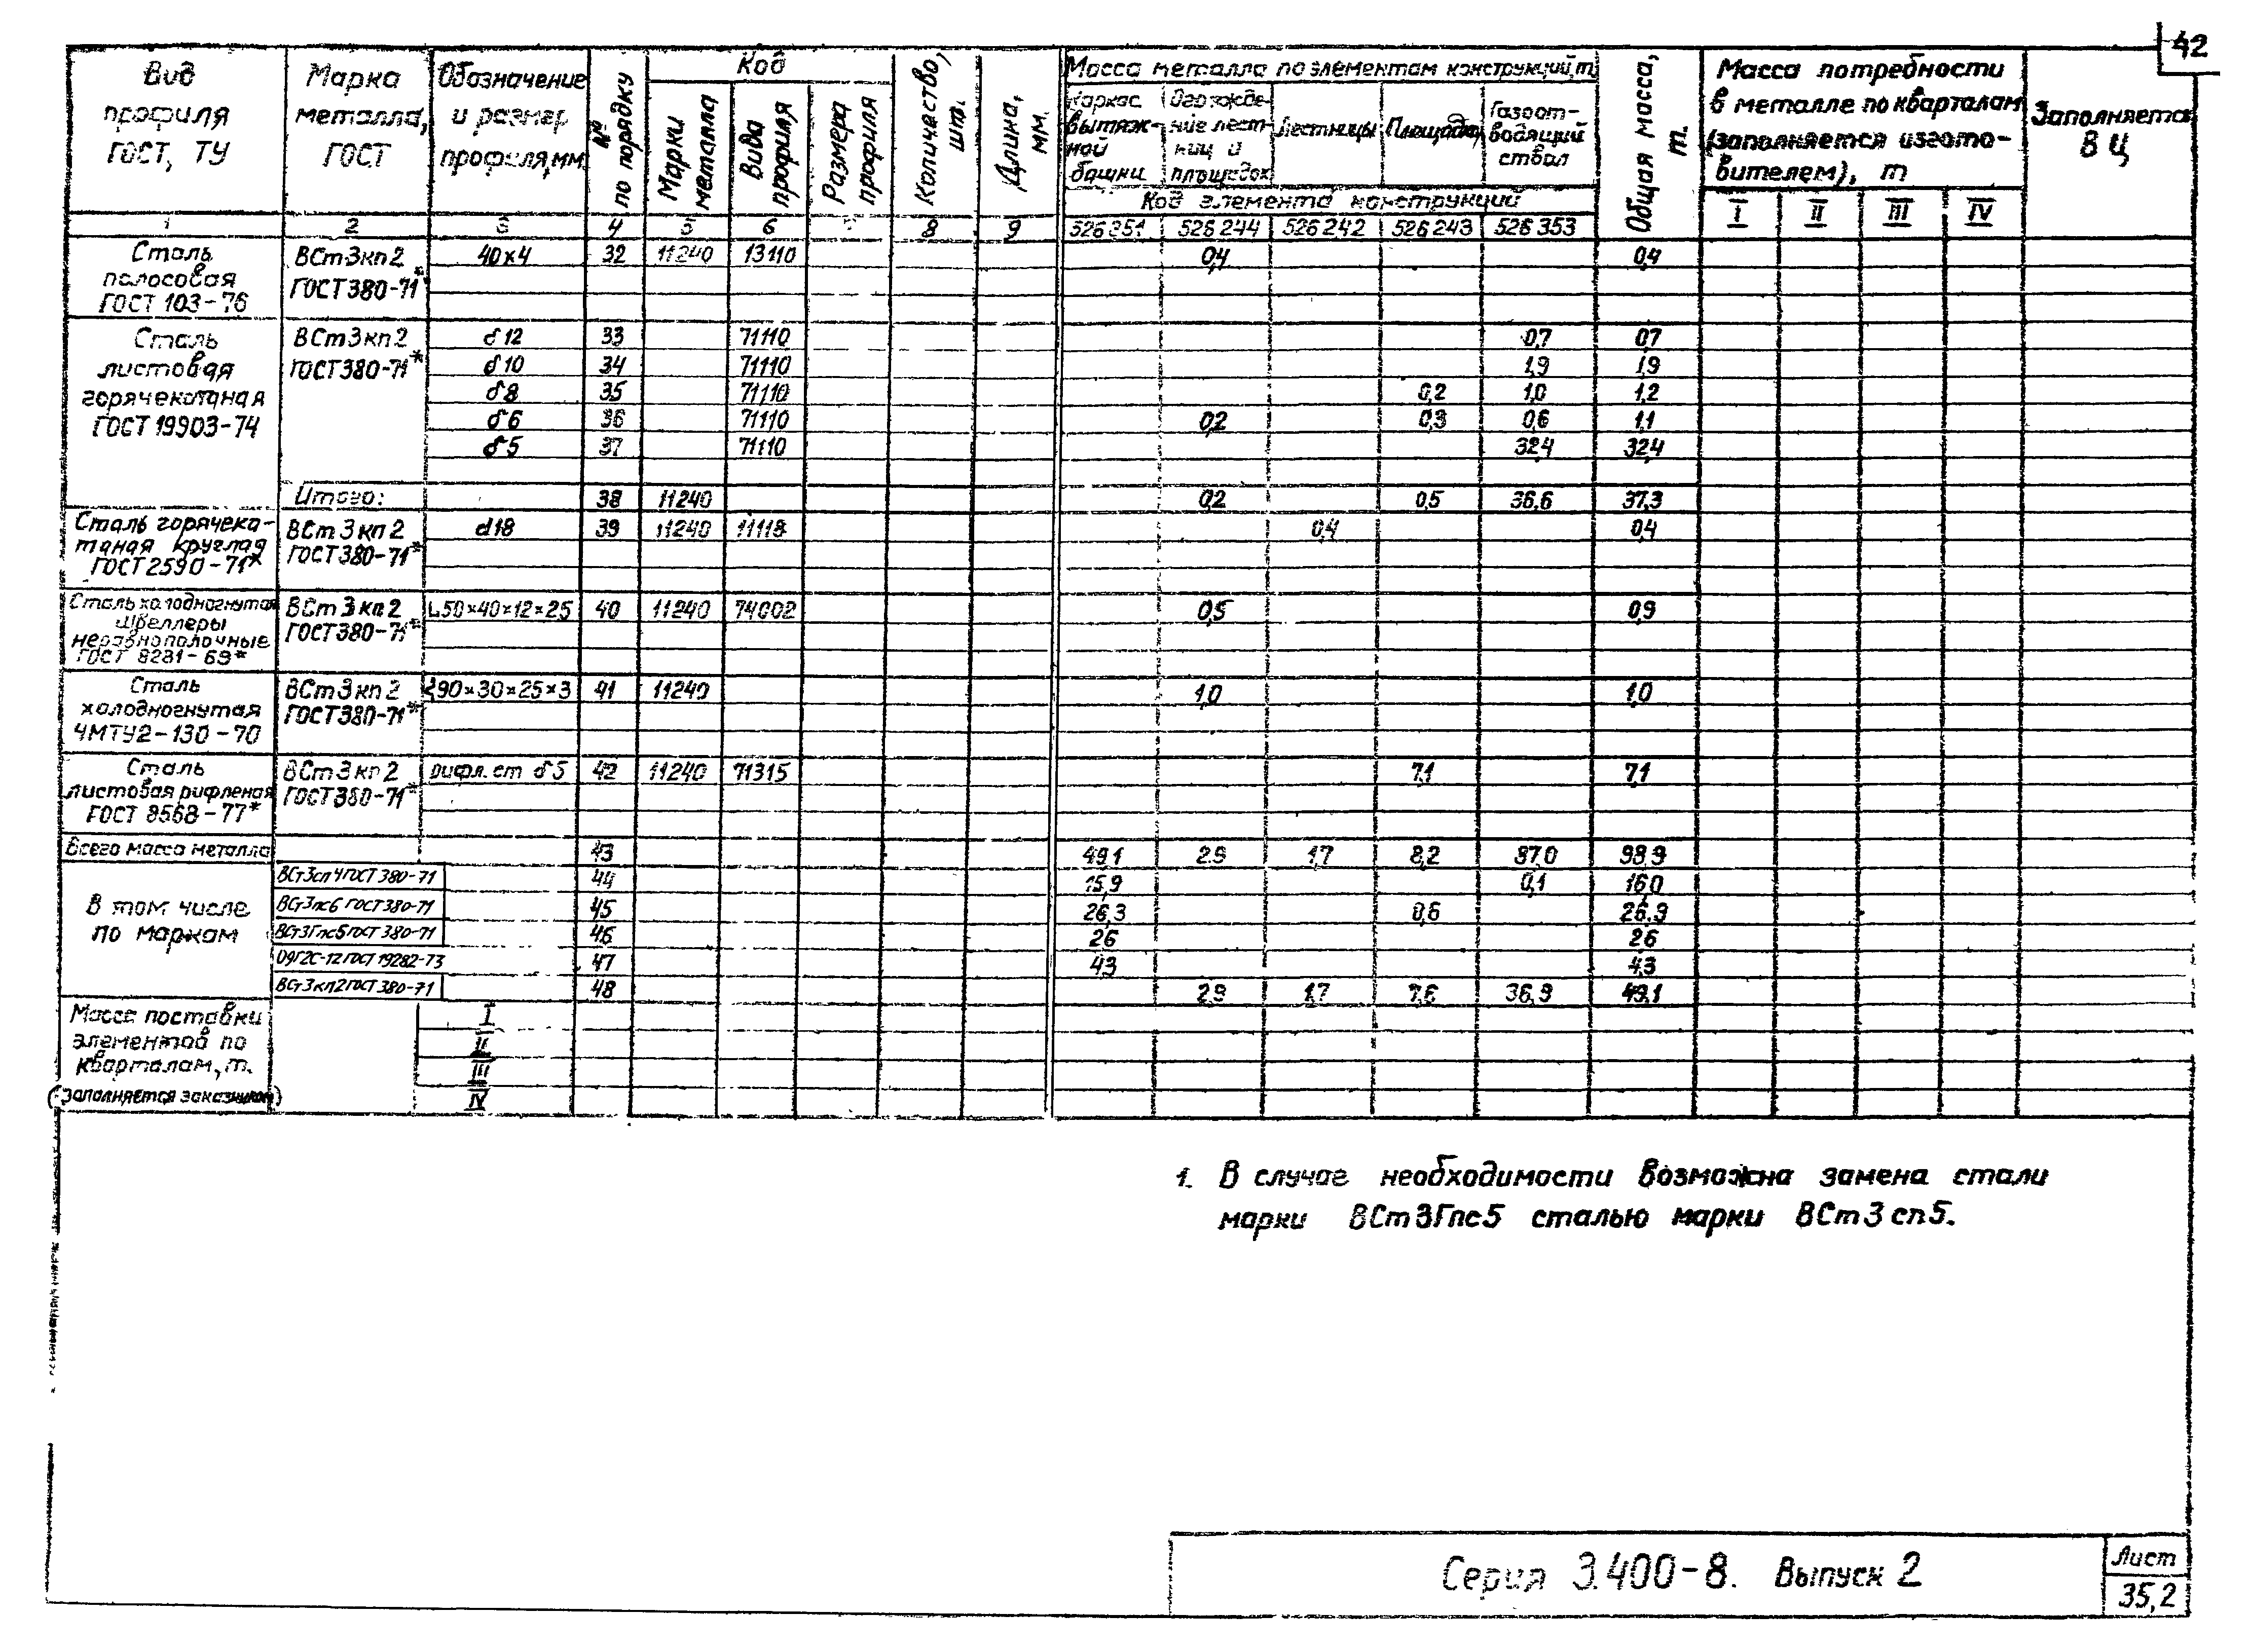 42
Вид профиля ГОСТ, ТУ
Марка металла, ГОСТ
Обозначение и размер профиля, мм
№ по порядку
Код
Марки металла
Вида профиля
Размера профиля
Количество, шт.
Длина, мм.
Масса металла по элементам конструкций, т
Каркас вытяжной башни
Огражде-ние лест-ниц и площадок
Лестницы
Площадки
Газоот-водящий ствол
Код элемента конструкции
Общая масса, т.
Масса потребности в металле по кварталам (заполняется изгото-вителем), т
I II III IV
Заполняется ВЦ
1 2 3 4 5 6 7 8 9 526351 526244 526242 526243 526353
Сталь полосовая ГОСТ 103-76
ВСт3кп2 ГОСТ 380-71*
40×4 32 11240 13110 0,4 0,4
Сталь листовая горячекатаная ГОСТ 19903-74
ВСт3кп2 ГОСТ 380-71*
δ12 33 71110 0,7 0,7
δ10 34 71110 1,9 1,9
δ8 35 71110 0,2 1,0 1,2
δ6 36 71110 0,2 0,3 0,6 1,1
δ5 37 71110 32,4 32,4
Итого: 38 11240 0,2 0,5 36,6 37,3
Сталь горячека-таная круглая ГОСТ 2590-71*
ВСт3кп2 ГОСТ 380-71*
d18 39 11240 11118 0,4 0,4
Сталь холодногнутая швеллеры неравнополочные ГОСТ 8281-69*
ВСт3кп2 ГОСТ 380-71*
50×40×12×2,5 40 11240 74002 0,5 0,9
Сталь холодногнутая ЧМТУ2-130-70
ВСт3кп2 ГОСТ 380-71*
90×30×25×3 41 11240 1,0 1,0
Сталь листовая рифленая ГОСТ 8568-77*
ВСт3кп2 ГОСТ 380-71*
рифл. ст δ5 42 11240 71315 7,1 7,1
Всего масса металла 43 49,1 2,9 1,7 8,2 37,0 98,9
В том числе по маркам
ВСт3сп4 ГОСТ 380-71 44 15,9 0,1 16,0
ВСт3пс6 ГОСТ 380-71 45 26,3 0,6 26,9
ВСт3Гпс5 ГОСТ 380-71 46 2,6 2,6
09Г2С-12 ГОСТ 19282-73 47 4,3 4,3
ВСт3кп2 ГОСТ 380-71 48 2,9 1,7 7,6 36,9 49,1
Масса поставки элементов по кварталам, т.
(Заполняется заказчиком)
I
II
III
IV
1. В случае необходимости возможна замена стали
марки ВСт3Гпс5 сталью марки ВСт3сп5.
Серия 3.400-8. Выпуск 2
Лист
35,2